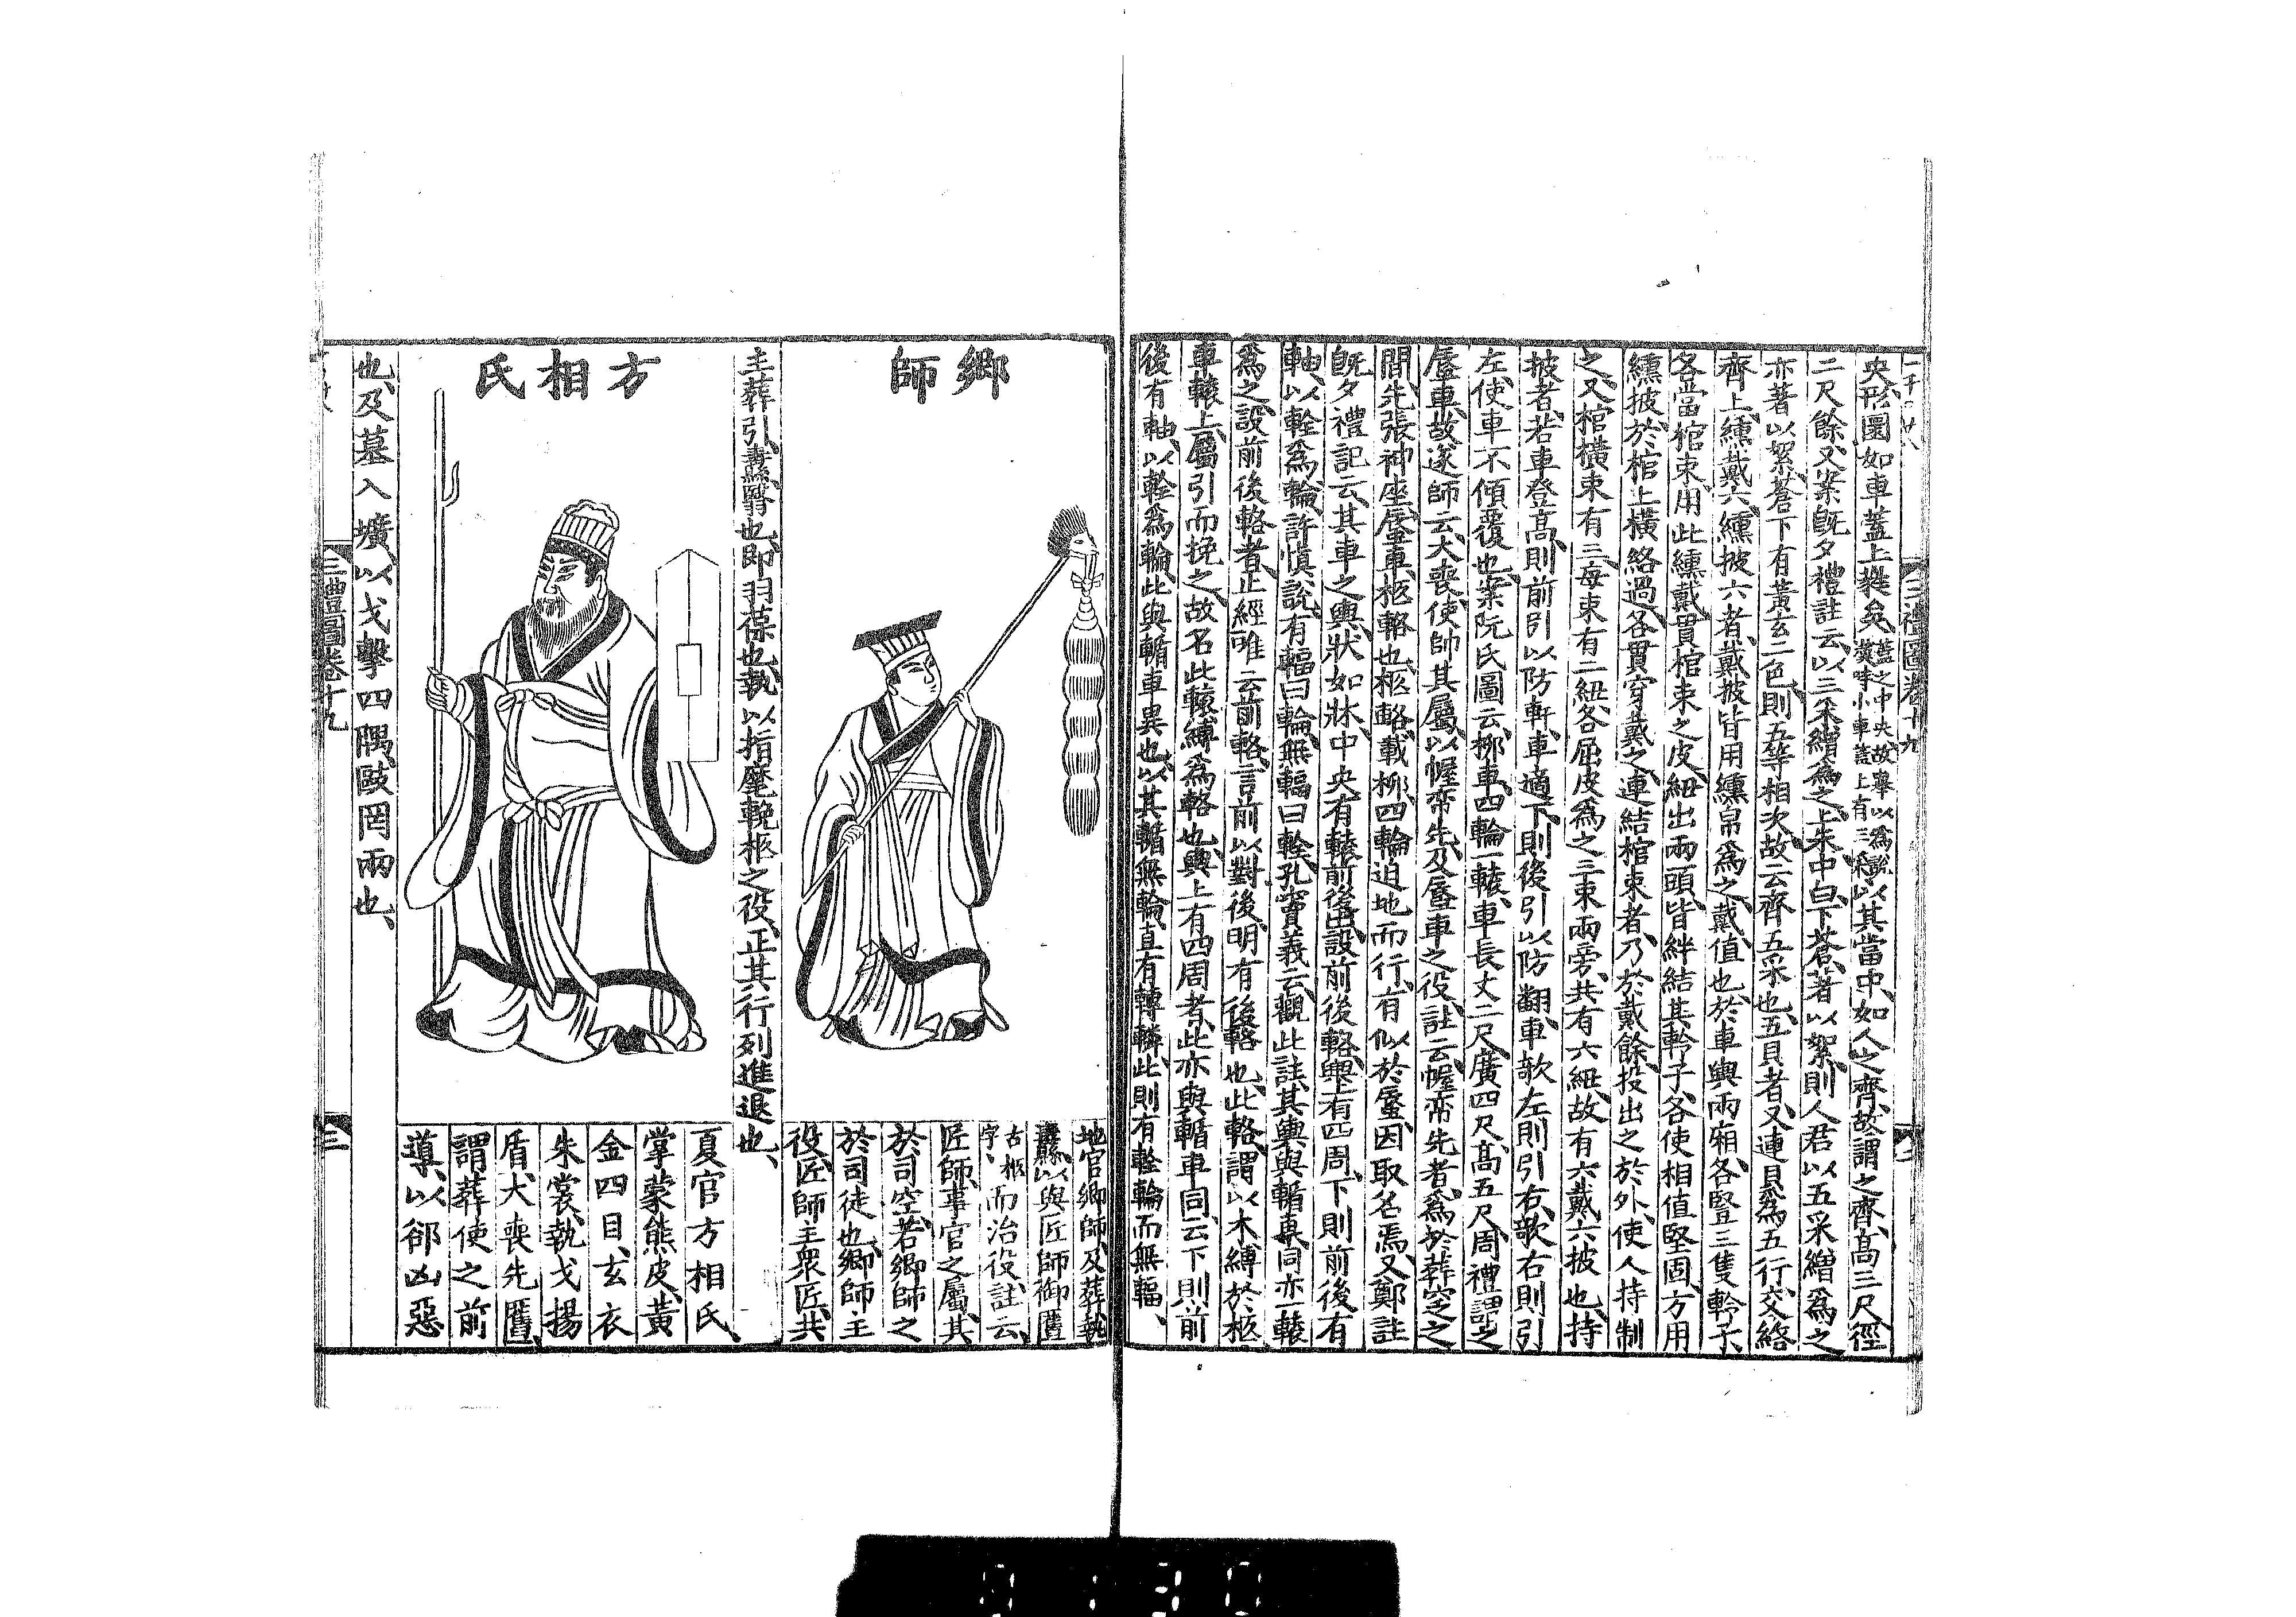 三禮圖卷十九
央形圜如車蓋上蕤矣蓋之中央故舉以為說漢時小車蓋上有三采以其當中如人之齊故謂之齊高三尺徑
二尺餘又案旣夕禮註云以三采繒為之上朱中白下蒼著以絮則人君以五采繒為之
亦著以絮蒼下有黃玄二色則五等相次故云齊五采也五貝者又連貝為五行交絡
齊上纁戴六纁披六者戴披皆用纁帛為之戴值也於車輿兩廂各豎三隻軨子
各當棺束用此纁戴貫棺束之皮紐出兩頭皆絆結其軨子各使相值堅固方用
纁披於棺上橫絡過各貫穿戴之連結棺束者乃於戴餘投出之於外使人持制
之又棺橫束有三每束有二紐各屈皮為之三束兩旁共有六紐故有六戴六披也持
披者若車登高則前引以防軒車適下則後引以防翻車欹左則引右欹右則引
左使車不傾覆也案阮氏圖云柳車四輪一轅車長丈二尺廣四尺高五尺周禮謂之
蜃車故遂師云大喪使帥其屬以幄帟先及蜃車之役註云幄帟先者為於葬窆之
間先張神座蜃車柩輅也柩輅載柳四輪迫地而行有似於蜃因取名焉又鄭註
旣夕禮記云其車之輿狀如牀中央有轅前後出設前後輅輿上有四周下則前後有
軸以輇為輪許慎說有輻曰輪無輻曰輇孔賈義云觀此註其輿與輴車同亦一轅
為之設前後輅者正經唯云前輅言前以對後明有後輅也此輅謂以木縛於柩
車轅上屬引而挽之故名此轅縛為輅也輿上有四周者此亦與輴車同云下則前
後有軸以輇為輪此與輴車異也以其輴無輪直有轉轔此則有輇輪而無輻
鄉師
地官鄉師及葬執
纛以與匠師御匶
古柩字而治役註云
匠師事官之屬其
於司空若鄉師之
於司徒也鄉師主
役匠師主衆匠共
主葬引纛翳也即羽葆也執以指麾輓柩之役正其行列進退也
方相氏
夏官方相氏
掌蒙熊皮黃
金四目玄衣
朱裳執戈揚
盾大喪先匶
謂葬使之前
導以郤凶惡
也及墓入壙以戈擊四隅毆罔兩也
三禮圖卷十九
三